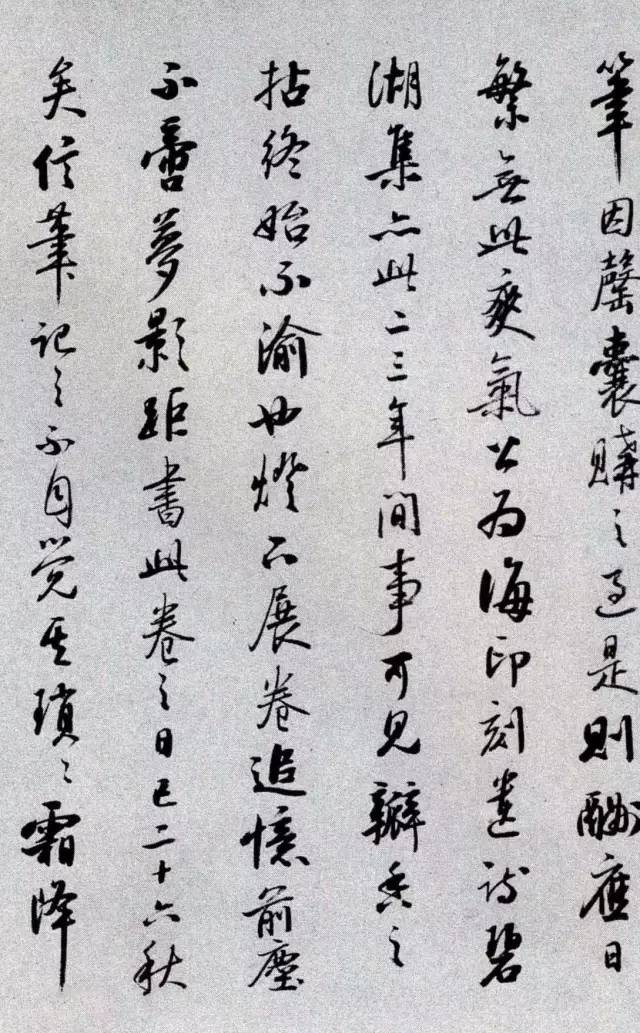 筆因罄囊購之過是則酬應日
繁無此爽氣公爲海印刻遺詩碧
湖集亦此二三年間事可見瓣香之
拈終始不渝也燈下展卷追憶前塵
不啻夢影距書此卷之日已二十六秋
矣信筆記之不自覺其瑣〻霜降